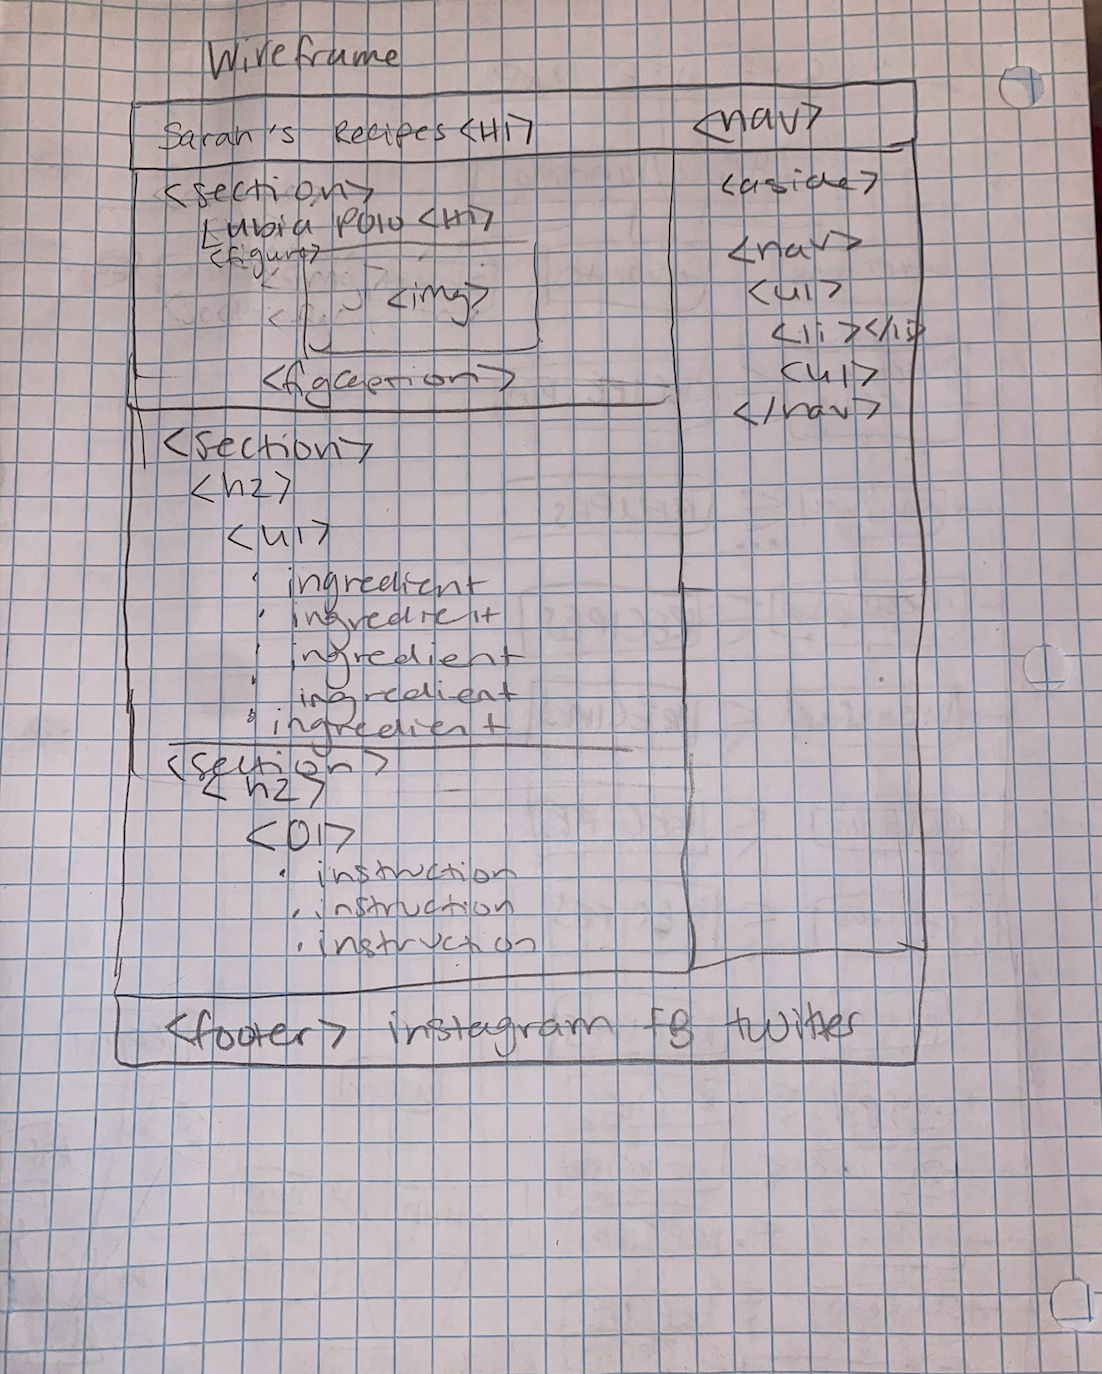 Wireframe
Sarah's Recipes <H1>
<nav>
<section>
Lubia Polo <H1>
<figure>
<img>
<figcaption>
<aside>
<nav>
<ul>
<li></li>
<ul>
</nav>
<section>
<h2>
<ul>
ingredient
ingredient
ingredient
ingredient
ingredient
<section>
<h2>
<Ol>
instruction
instruction
instruction
<footer> instagram FB twitter